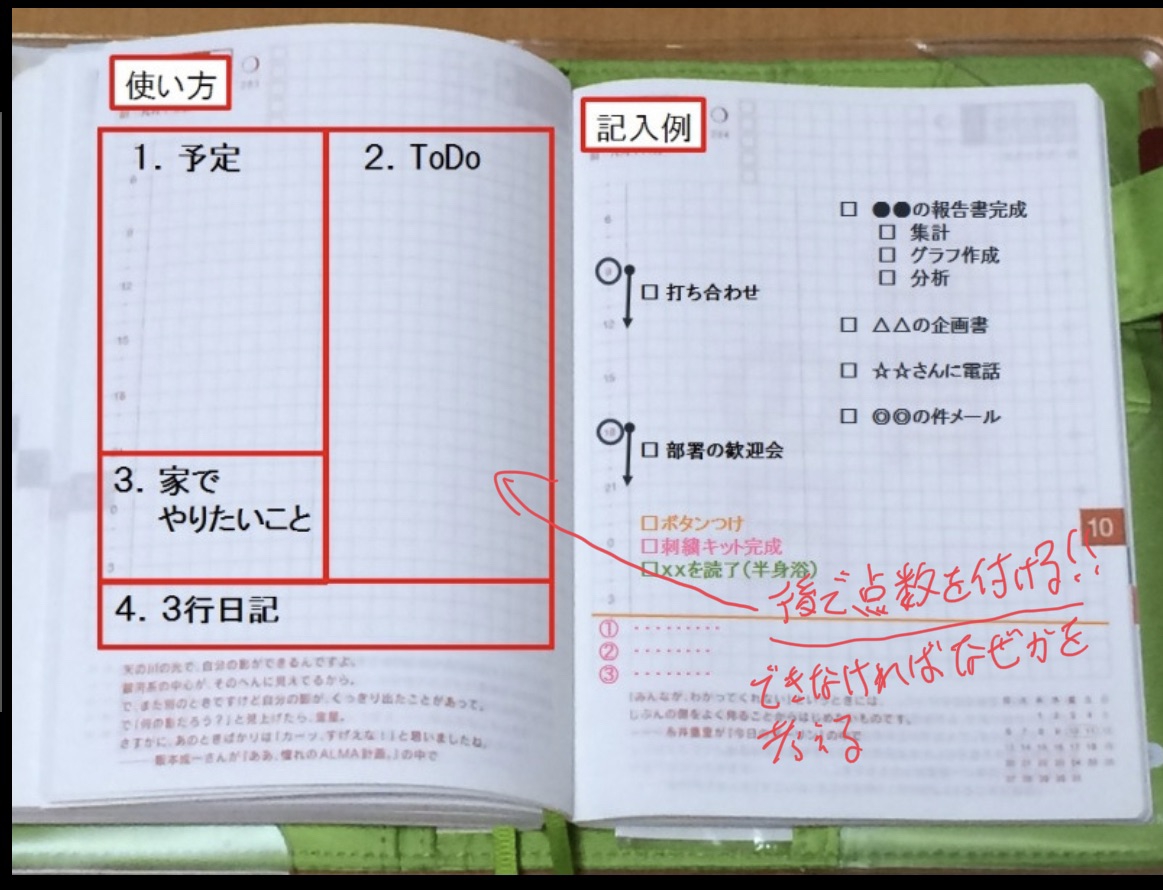 使い方
1. 予定
2. ToDo
3. 家で
やりたいこと
4. 3行日記
天の川の光で、自分の影ができるんですよ。
銀河系の中心が、そのへんに見えてるから。
で、また別のときですけど自分の影が、くっきり出たことがあって、
で「何の影だろう?」と見上げたら、金星。
さすがに、あのときばかりは「カーッ、すげえな!」と思いましたね。
——阪本成一さんが『ああ、憧れのALMA計画。』の中で
記入例
6
9
12
15
18
21
0
3
□ 打ち合わせ
□ 部署の歓迎会
□ ●●の報告書完成
□ 集計
□ グラフ作成
□ 分析
□ △△の企画書
□ ☆☆さんに電話
□ ◎◎の件メール
□ボタンつけ
□刺繍キット完成
□xxを読了(半身浴)
10
①・・・・・・・・・
②・・・・・・・・
③・・・・・・・・
後で点数を付ける!!
できなければなぜかを
考える
「みんなが、わかってくれない」というときには、
じぶんの側をよく見ることからはじめるものです。